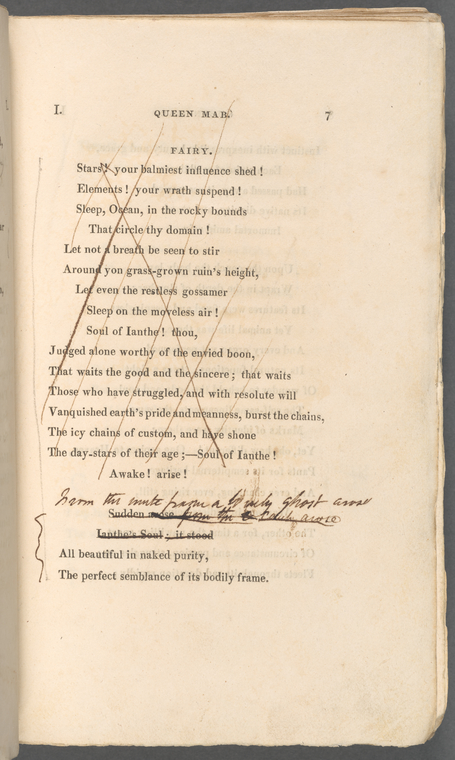 I. QUEEN MAB. 7
FAIRY.
Stars! your balmiest influence shed!
Elements! your wrath suspend!
Sleep, Ocean, in the rocky bounds
That circle thy domain!
Let not a breath be seen to stir
Around yon grass-grown ruin's height,
Let even the restless gossamer
Sleep on the moveless air!
Soul of Ianthe! thou,
Judged alone worthy of the envied boon,
That waits the good and the sincere; that waits
Those who have struggled, and with resolute will
Vanquished earth's pride and meanness, burst the chains,
The icy chains of custom, and have shone
The day-stars of their age;—Soul of Ianthe!
Awake! arise!
From the mute frame a lovely ghost arose
Sudden arose from the
Ianthe's Soul; it stood
All beautiful in naked purity,
The perfect semblance of its bodily frame.